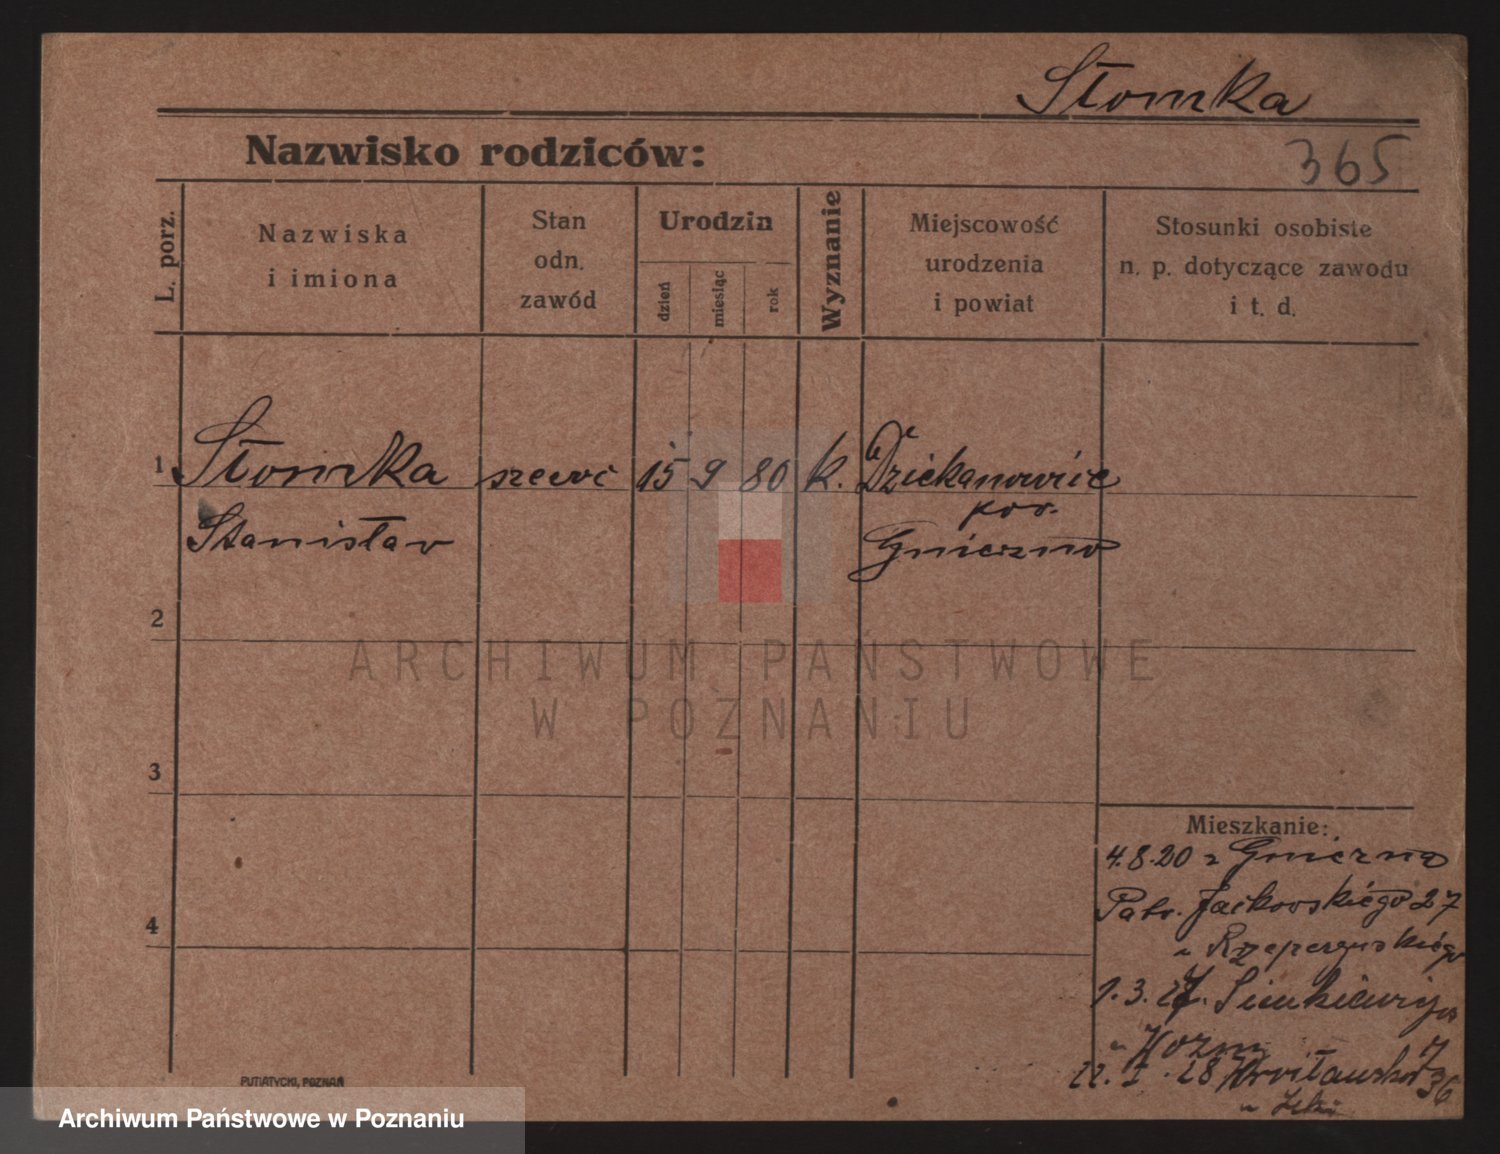 Słomka
Nazwisko rodziców:
365
L. porz.
Nazwiska
i imiona
Stan
odn.
zawód
Urodzin
dzień
miesiąc
rok
Wyznanie
Miejscowość
urodzenia
i powiat
Stosunki osobiste
n. p. dotyczące zawodu
i t. d.
1 Słomka szewc 15 9 80 k. Dziekanowice
pow.
Stanisław Gniezno
2
ARCHIWUM PAŃSTWOWE
W POZNANIU
3
Mieszkanie:
4.8.20 z Gniezno
Patr. Jackowskiego 27
4
1.3.27. Sienkiewicza
7
22. I. 28 36
PUTIATYCKI, POZNAŃ
Archiwum Państwowe w Poznaniu